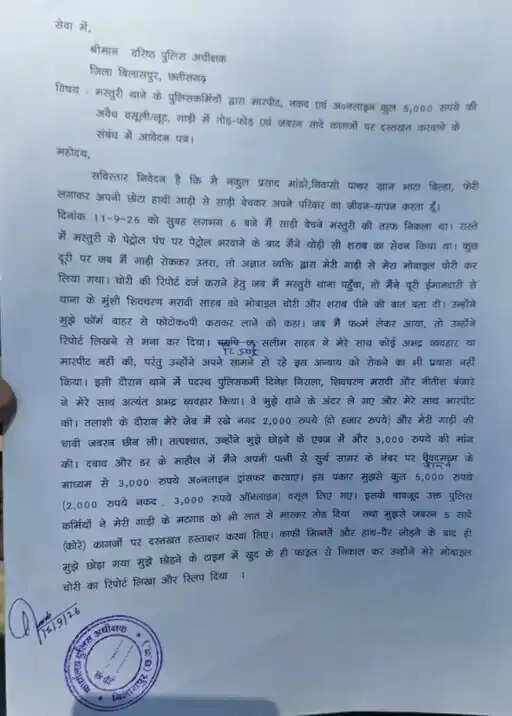 सेवा में,
श्रीमान वरिष्ठ पुलिस अधीक्षक
जिला बिलासपुर, छत्तीसगढ़
विषय : मस्तुरी थाने के पुलिसकर्मियों द्वारा मारपीट, नकद एवं अ०नलाइन कुल 5,000 रुपये की
अवैध वसूली/लूट, गाड़ी में तोड़-फोड़ एवं जबरन सादे कागजों पर दस्तखत करवाने के
संबंध में आवेदन पत्र।
महोदय,
सविस्तार निवेदन है कि मै नकुल प्रसाद मांडरे,निवासी पत्थर खान भाटा बिल्हा, फेरी
लगाकर अपनी छोटा हाथी गाड़ी से साड़ी बेचकर अपने परिवार का जीवन-यापन करता हूँ।
दिनांक 11-9-26 को सुबह लगभग 6 बजे मैं साड़ी बेचने मस्तुरी की तरफ निकला था। रास्ते
में मस्तुरी के पेट्रोल पंप पर पेट्रोल भरवाने के बाद मैंने थोड़ी सी शराब का सेवन किया था। कुछ
दूरी पर जब मैं गाड़ी रोककर उतरा, तो अज्ञात व्यक्ति द्वारा मेरी गाड़ी से मेरा मोबाइल चोरी कर
लिया गया। चोरी की रिपोर्ट दर्ज कराने हेतु जब मैं मस्तुरी थाना पहुँचा, तो मैंने पूरी ईमानदारी से
थाना के मुंशी शिवचरण मरावी साहब को मोबाइल चोरी और शराब पीने की बात बता दी। उन्होंने
मुझे फॉर्म बाहर से फोटोक०पी कराकर लाने को कहा। जब मैं फ०र्म लेकर आया, तो उन्होंने
रिपोर्ट लिखने से मना कर दिया। सलीम साहब ने मेरे साथ कोई अभद्र व्यवहार या
मारपीट नहीं की, परंतु उन्होंने अपने सामने हो रहे इस अन्याय को रोकने का भी प्रयास नहीं
किया। इसी दौरान थाने में पदस्थ पुलिसकर्मी दिनेश निराला, शिवचरण मरावी और नीतीश बंजारे
ने मेरे साथ अत्यंत अभद्र व्यवहार किया। वे मुझे थाने के अंदर ले गए और मेरे साथ मारपीट
की। तलाशी के दौरान मेरे जेब में रखे नगद 2,000 रुपये (दो हजार रुपये) और मेरी गाड़ी की
चाबी जबरन छीन ली। तत्पश्चात, उन्होंने मुझे छोड़ने के एवज में और 3,000 रुपये की मांग
की। दबाव और डर के माहौल में मैंने अपनी पत्नी से सुर्य सागर के नंबर पर के
माध्यम से 3,000 रुपये अ०नलाइन ट्रांसफर करवाए। इस प्रकार मुझसे कुल 5,000 रुपये
(2,000 रुपये नकद , 3,000 रुपये ऑनलाइन) वसूल लिए गए। इसके बावजूद उक्त पुलिस
कर्मियों ने मेरी गाड़ी के मटगाड को भी लात से मारकर तोड़ दिया तथा मुझसे जबरन 5 सादे
(कोरे) कागजों पर दस्तखत हस्ताक्षर करवा लिए। काफी मिन्नतें और हाथ-पैर जोड़ने के बाद ही
मुझे छोड़ा गया मुझे छोड़ने के टाइम में खुद के ही फाइल से निकाल कर उन्होंने मेरे मोबाइल
चोरी का रिपोर्ट लिखा और स्लिप दिया ।
15/9/26
कार्यालय पुलिस अधीक्षक
बिलासपुर (छ.ग.)